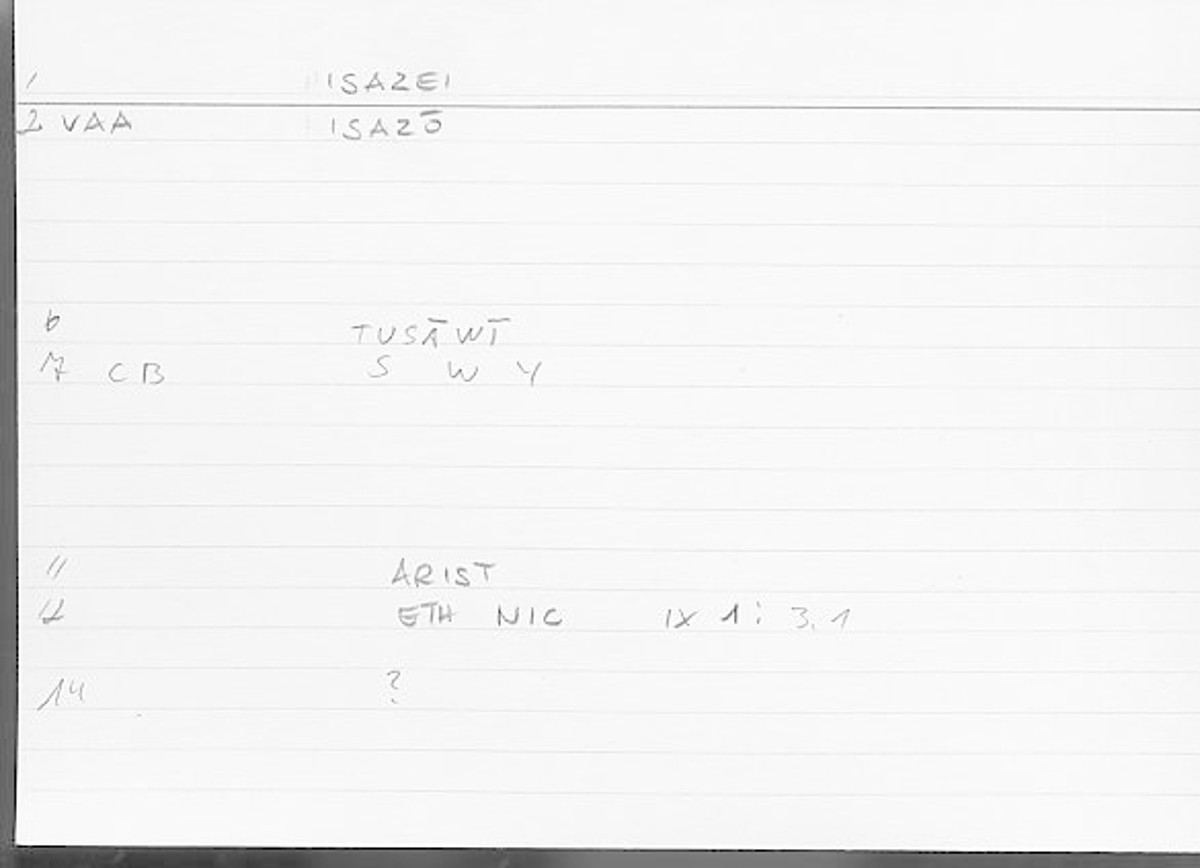 1 ISAZEI
2 VAA ISAZŌ
6 TUSĀWĪ
7 CB S W Y
11 ARIST
12 ETH NIC IX 1: 3.1
14 ?